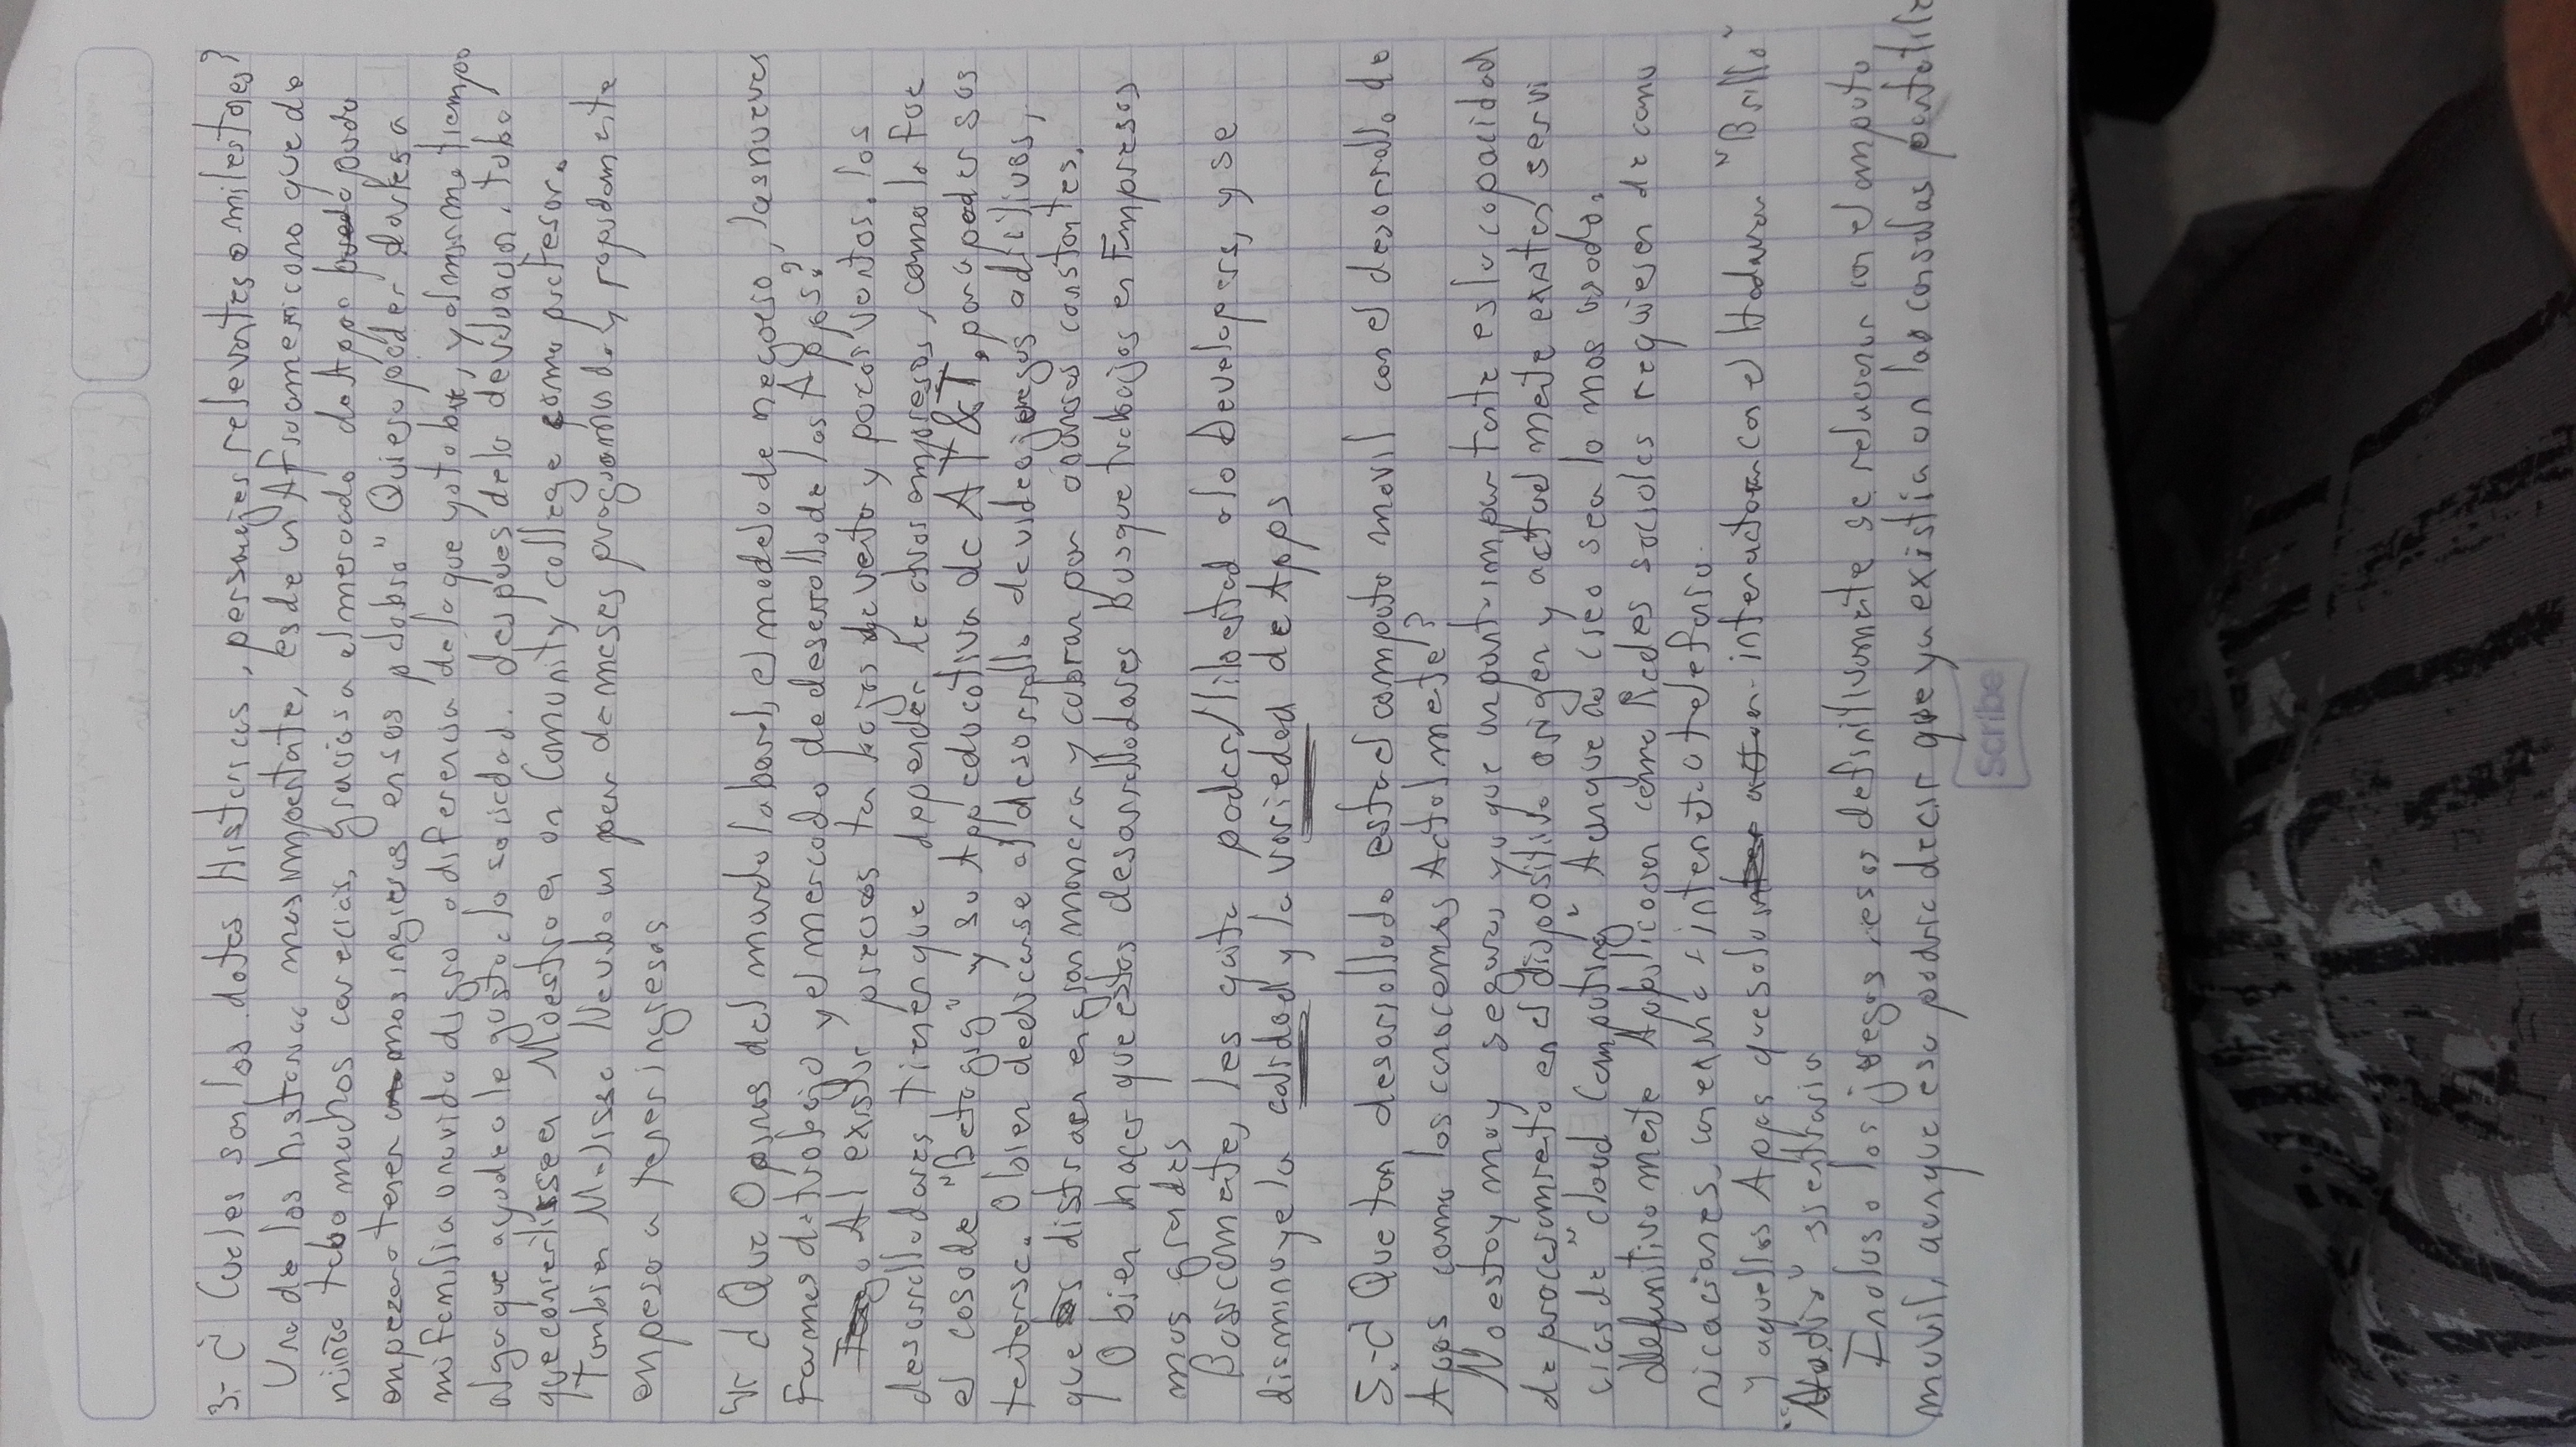 3.- ¿Cuales son los datos Historicos, personajes relevantes o milestones?
Una de las historias mas importante, es de un Afroamericano que de
niño tubo muchos carencias, gracias a el mercado de App pudo
empezar a tener mas ingresos en sus palabra "Quiero poder darles a
mi familia una vida digna a diferencia de la que yo tobe, y al mismo tiempo
algo que ayude o le guste a la sociedad. despues de la devaluacion, tubo
que convertirse en Maestro en un Comunity college como profesor.
Tambien Melissa Neubaum por de meses programando y rapidamente
empeso a tener ingresos
4.- ¿Que Opinas del mundo laboral, el modelo de negocio, las nuevas
formas de trabajo y el mercado de desarrollo de las Apps?
Al existir precios tan bajos de venta y pocas ventas. los
desarrolladores tienen que depender de otras empresas, como lo fue
el caso de "Betagig" y su App educativa de AT&T, para poder sus
tentarse. O bien dedicarse al desarrollo de videojegos aditivos,
que distraen en gran manera y cobrar por adones constantes.
O bien hacer que estos desarrolladores busque trabajos en Empresas
mas grandes
Basicamente, les quita poder/libertad a lo Developers, y se
disminuye la calidad y la variedad de Apps
5.-¿Que tan desarollado esta el computo movil con el desarrollo de
Apps como los conocemos Actulmete?
No estoy muy seguro, ya que un part importante es la capacidad
de procesamiento en el dispositivo origen y actualmente existen servi
cios de "cloud Computing" Aunque no creo sea lo mas usado.
definitivamente Aoplicacoen como Redes sociales requieren de comu
nicaciones, conexion a internet o telefonia.
y aquellas Apps que solo interactuan con el Hadware "Brillo"
"Audio" si entraria
Incluso los juegos, esos definitivamente se relacionan con el computo
movil, aunque eso podria decir que ya existia en las consolas portatiles
Scribe